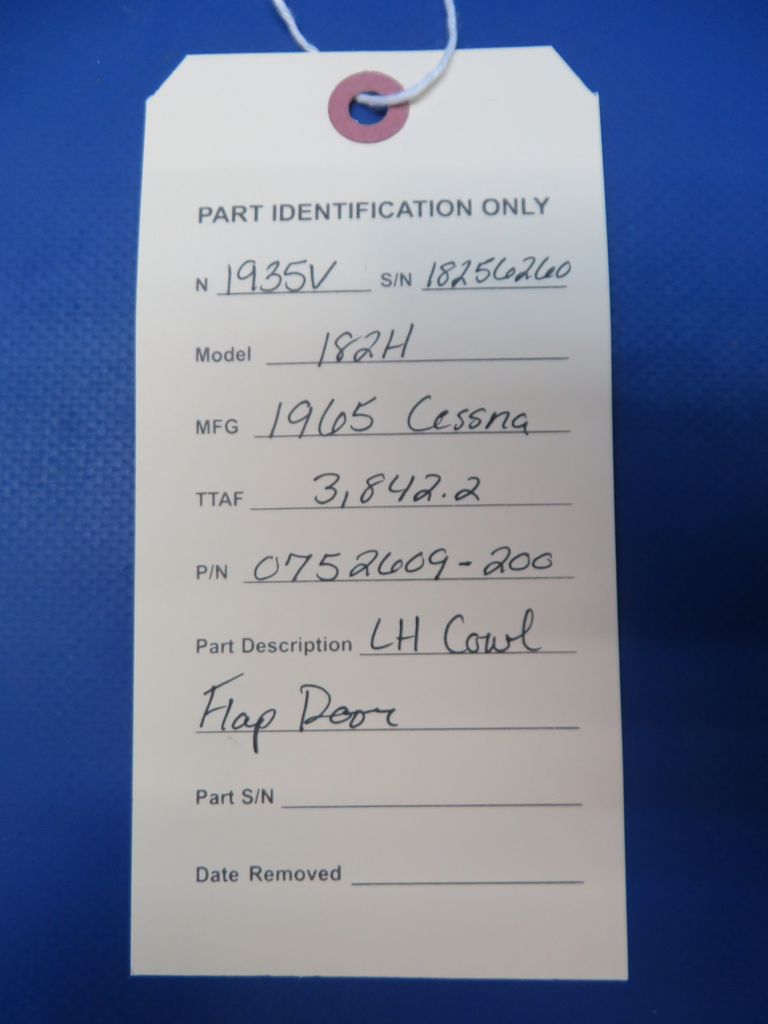 PART IDENTIFICATION ONLY
N 1935V S/N 18256260
Model 182H
MFG 1965 Cessna
TTAF 3,842.2
P/N 0752609-200
Part Description LH Cowl
Flap Door
Part S/N
Date Removed